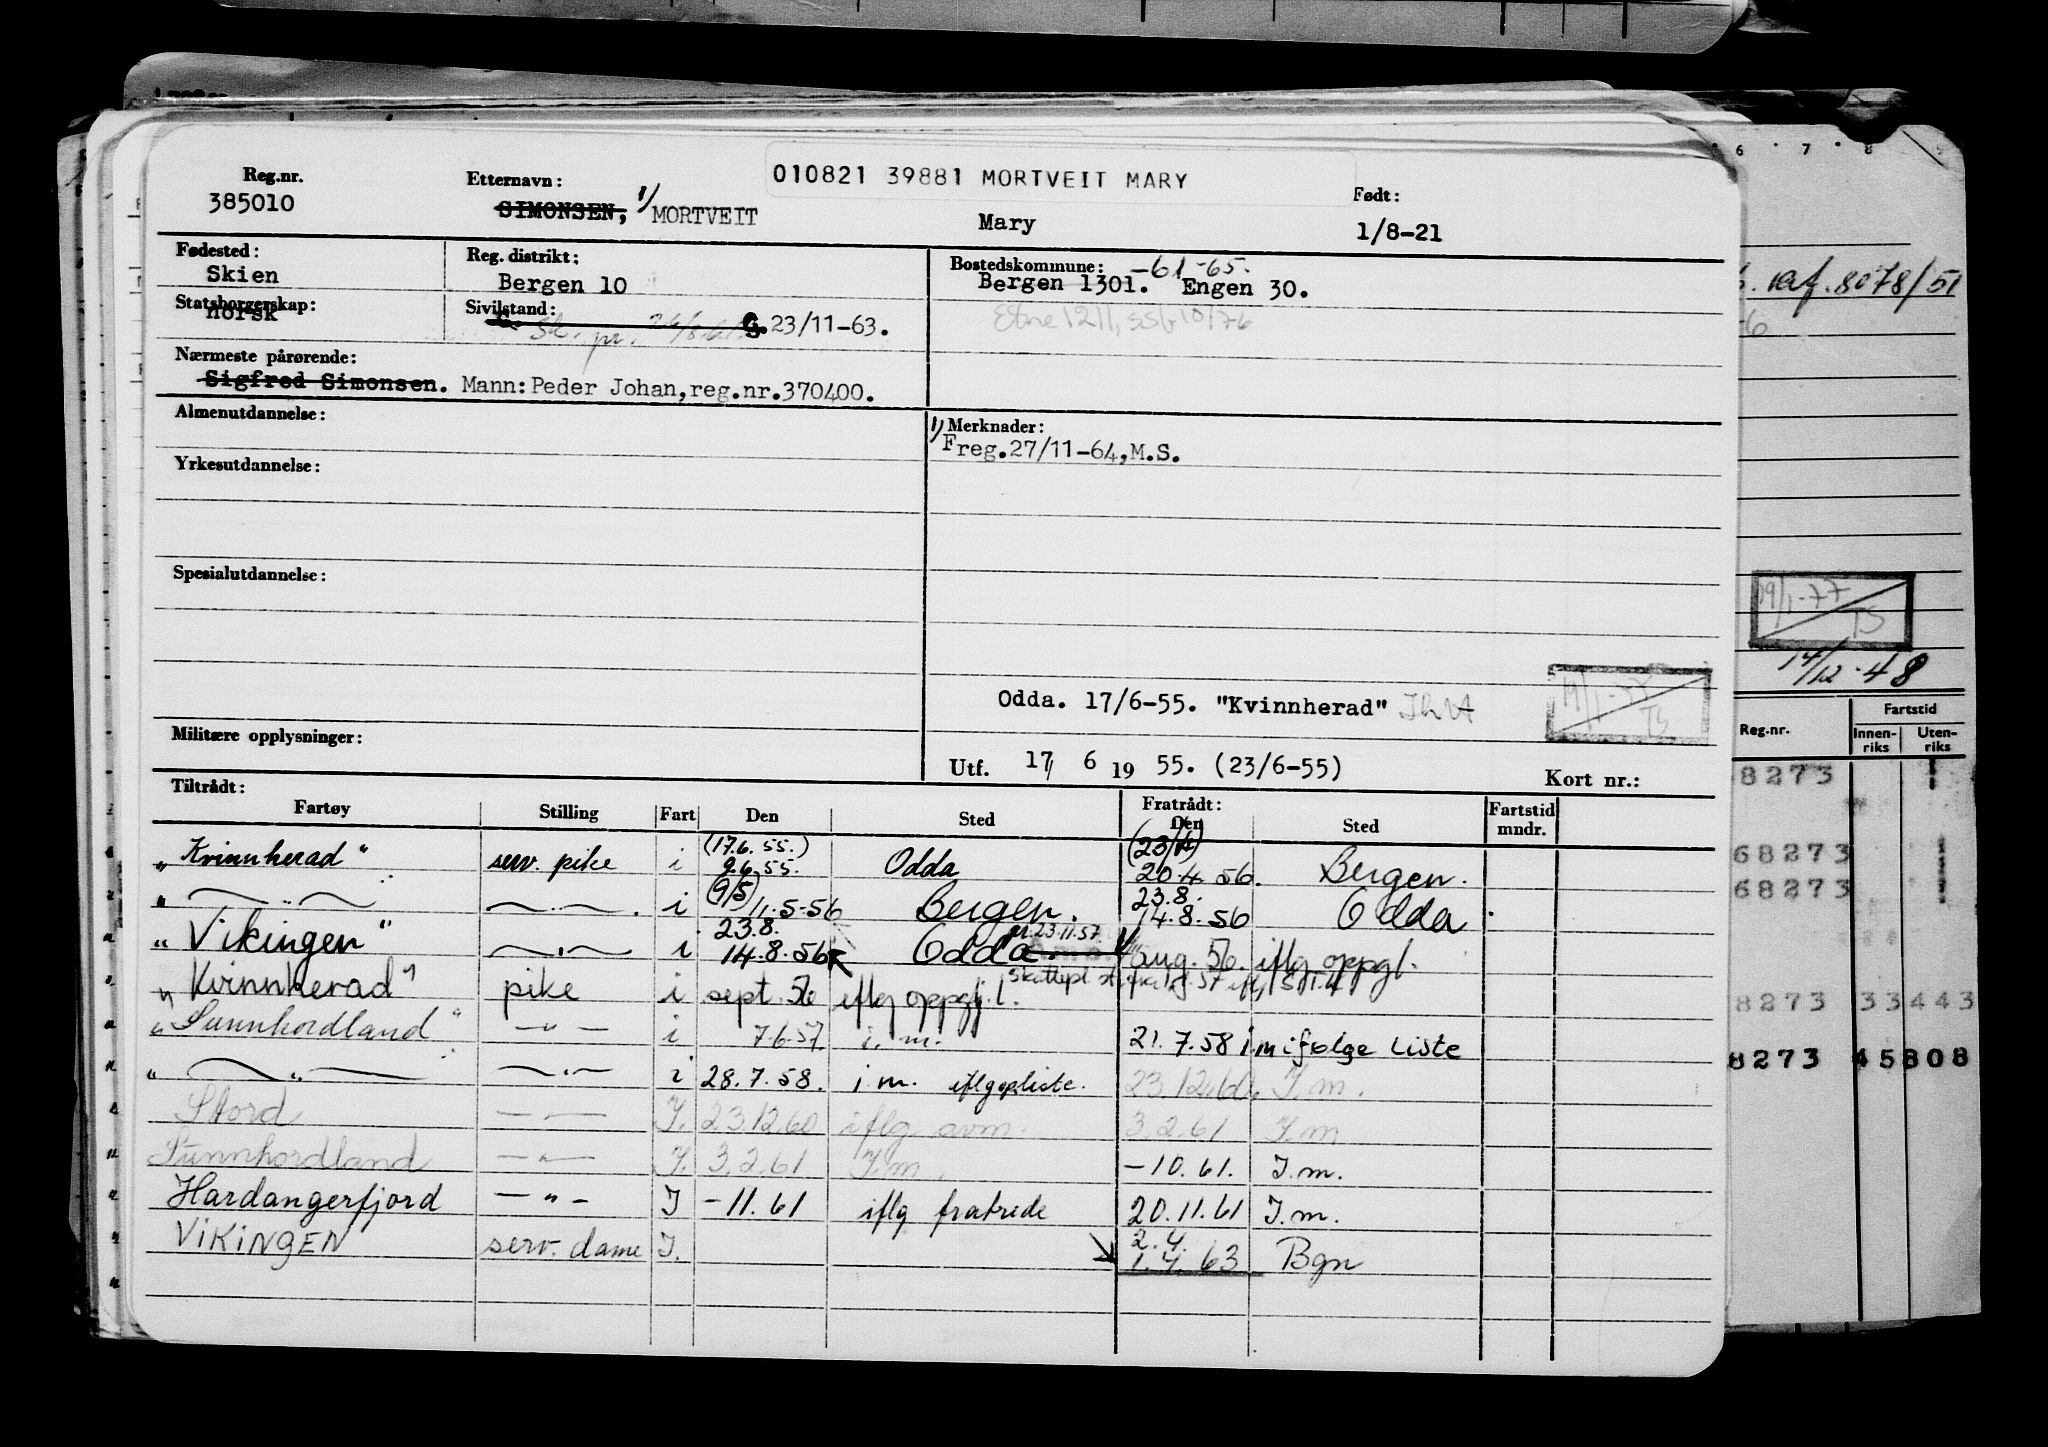 010821 39881 MORTVEIT MARY
Reg.nr. Etternavn: Født:
385010 SIMONSEN, 1/ MORTVEIT Mary 1/8-21
Fødested: Reg. distrikt: Bostedskommune: -61-65.
Skien Bergen 10 Bergen 1301. Engen 30.
Statsborgerskap: Sivilstand:
norsk G. 23/11-63.
Etne 1211, SSB 10/76
Nærmeste pårørende:
Sigfred Simonsen. Mann: Peder Johan, reg.nr.370400.
Almenutdannelse: 1/ Merknader:
Freg.27/11-64,M.S.
Yrkesutdannelse:
Spesialutdannelse:
Odda. 17/6-55. "Kvinnherad"
19/1-77 TS
Militære opplysninger:
Utf. 17/ 6 19 55. (23/6-55) Kort nr.:
Tiltrådt: Fratrådt:
Fartøy Stilling Fart Den Sted Den Sted Fartstid mndr.
(17.6.55.) (23/4)
"Kvinnherad" serv. pike i 9.6.55. Odda 20.4.56. Bergen.
(9/5) 23.8.
" — " — — " — . i 11.5.56 Bergen. 14.8.56 Odda.
23.8. 23.11.57
"Vikingen" — " — i 14.8.56 Odda aug. 56. iflg oppgj.
"Kvinnherad" pike i sept. 56 iflg oppgj.
"Sunnhordland" — " — i 7.6.57. i.m. 21.7.58 i.m ifølge liste
" — " — — " — i 28.7.58. i.m. iflg opliste. 23.12.60. I.m.
Stord — " — I. 23.12.60 iflg avm. 3.2.61 I.m
Sunnhordland — " — I. 3.2.61 I.m. -10.61. I.m.
Hardangerfjord — " — I -11.61 iflg fratrede 20.11.61 I.m.
2.4.
VIKINGEN serv. dame I. 1.4.63 Bgn
6 7 8 9
8078/51
19/1-77 TS
14/12-48
Reg.nr. Fartstid
Innen-riks Uten-riks
8273
68273
68273
8273 33443
8273 45808